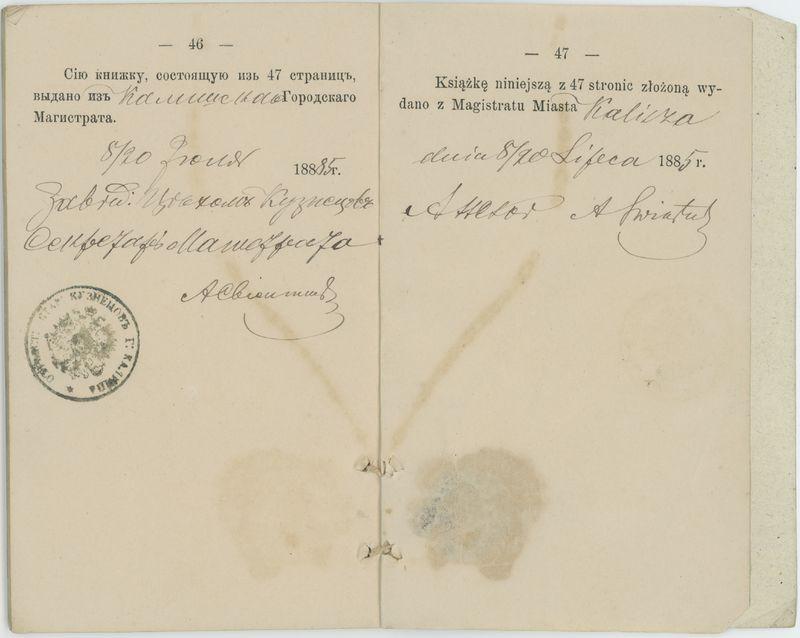 — 46 —
Сію книжку, состоящую изъ 47 страницъ,
выдано изъ Калишскаго Городскаго
Магистрата.
8/20 Іюля 1885 г.
Кузнецовъ
Секретарь Магистрата
КУЗНЕЦОВЪ Г. КАЛИША
— 47 —
Książkę niniejszą z 47 stronic złożoną wy-
dano z Magistratu Miasta Kalisza
dnia 8/20 Lipca 1885 r.